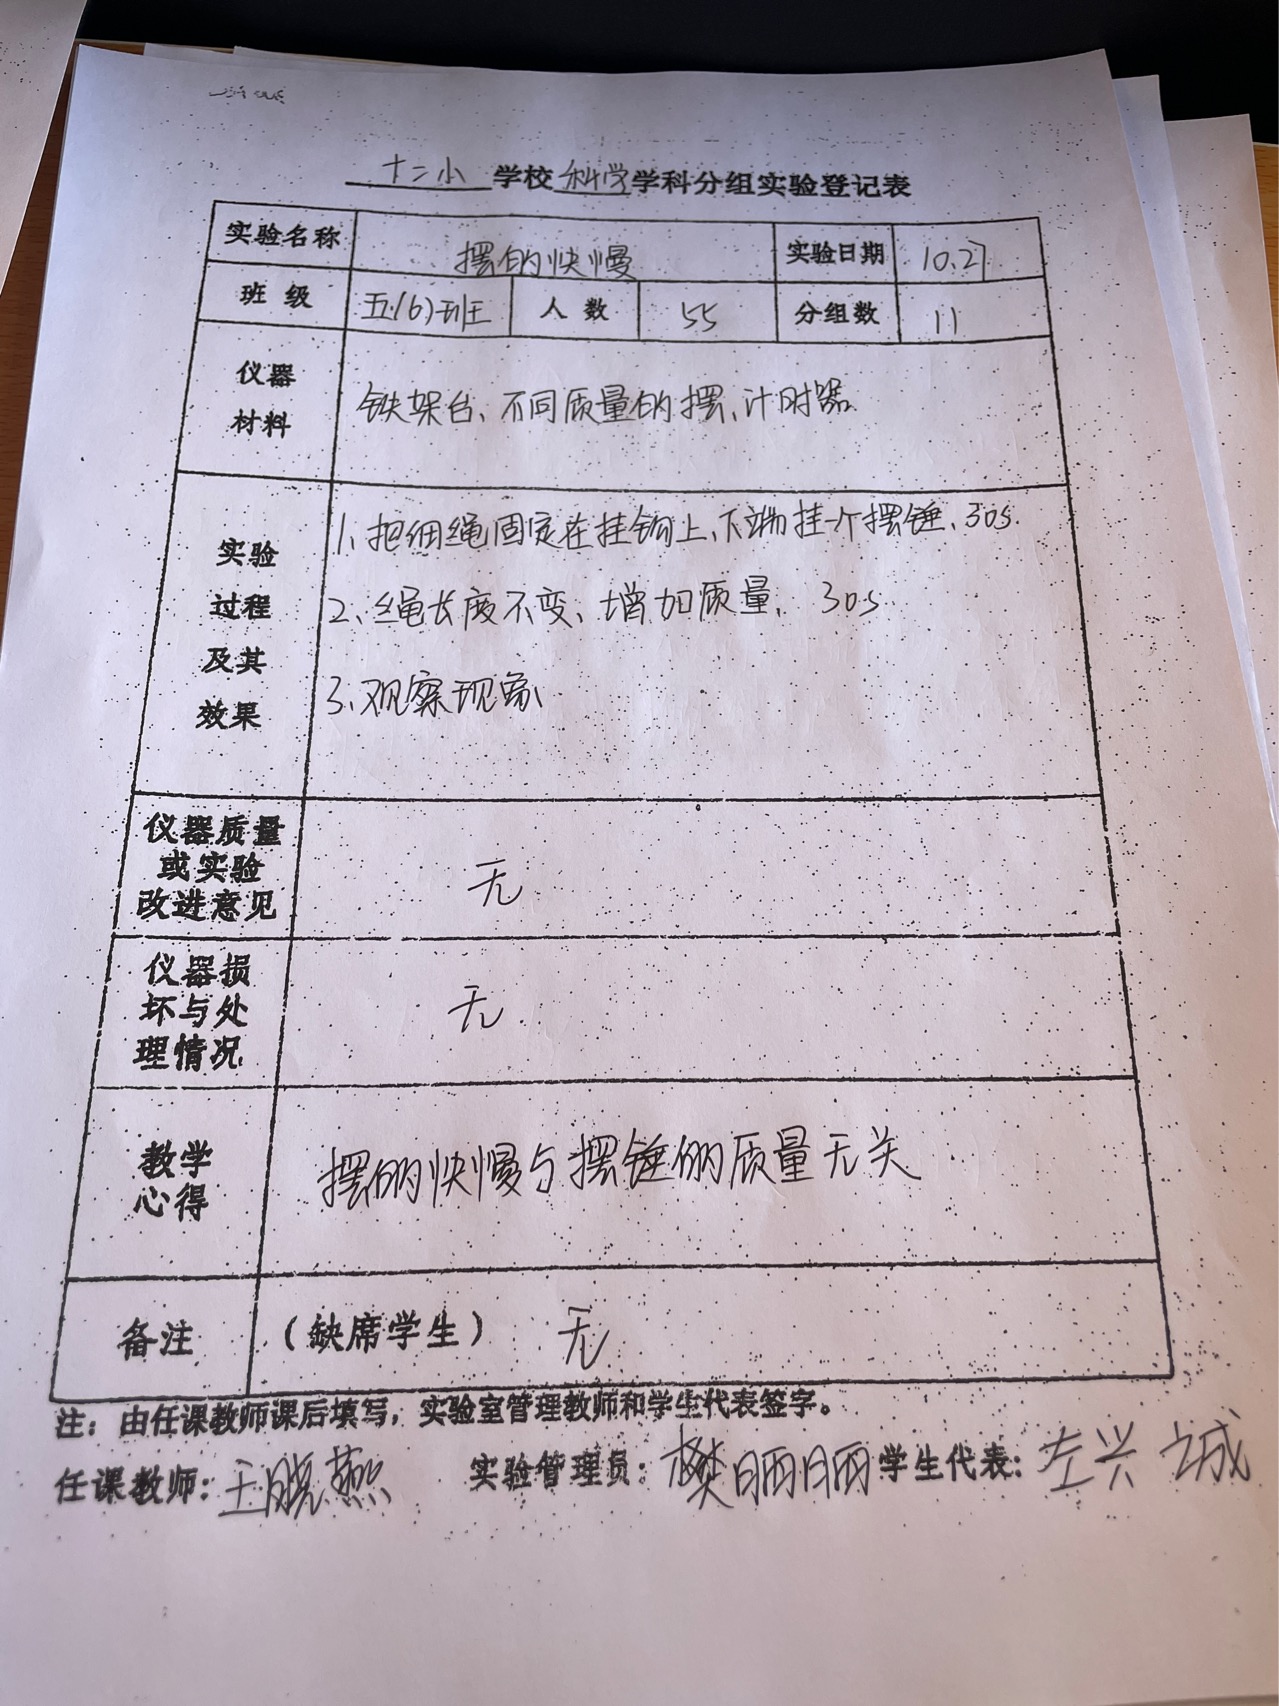 十二小学校科学学科分组实验登记表
实验名称 摆的快慢 实验日期 10.27
班级 五(6)班 人数 55 分组数 11
仪器
材料
铁架台、不同质量的摆、计时器
实验
过程
及其
效果
1、把细绳固定在挂钩上、下端挂一个摆锤、30s.
2、绳长度不变、增加质量、30s
3、观察现象、
仪器质量
或实验
改进意见
无
仪器损
坏与处
理情况
无
教学
心得
摆的快慢与摆锤的质量无关
备注 (缺席学生) 无
注：由任课教师课后填写，实验室管理教师和学生代表签字。
任课教师：王晓燕 实验管理员：樊丽丽 学生代表：左兴之城